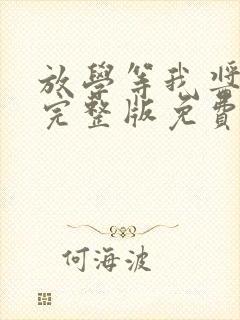 放學等我獎
完整版免費
何海波